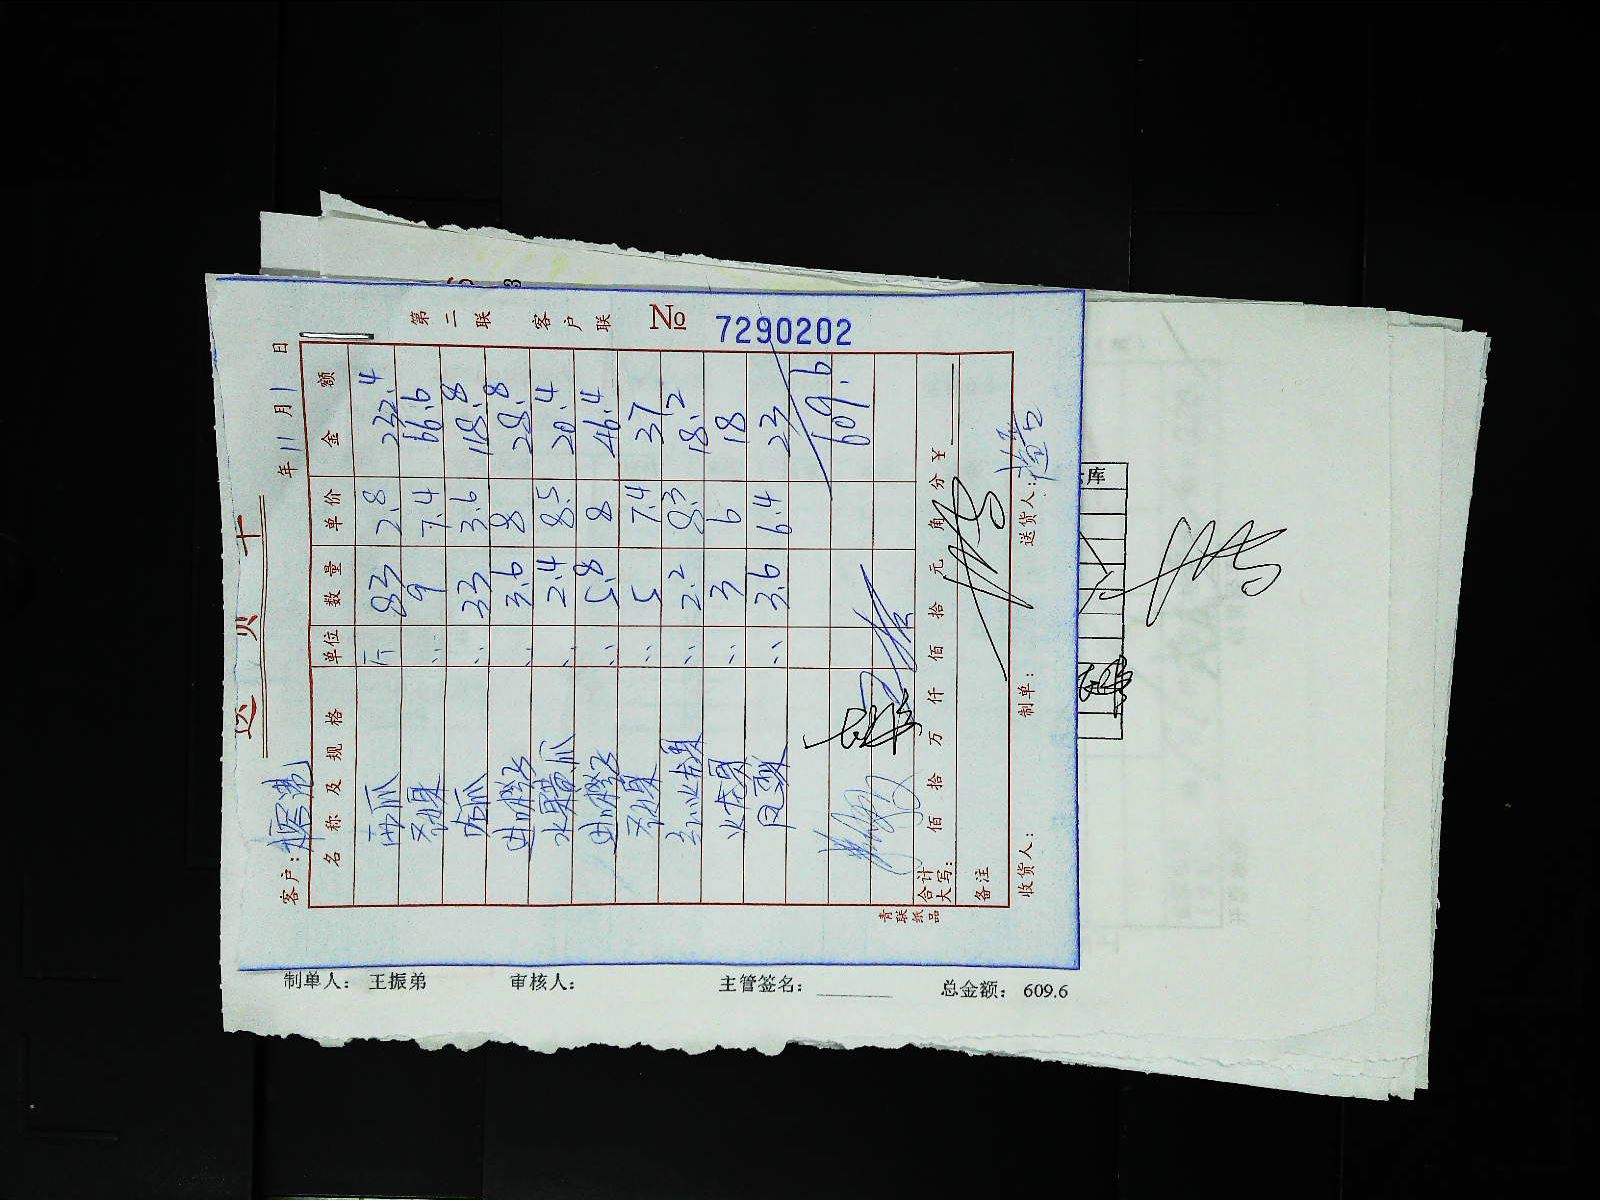 第二联 客户联 No 7290202
年11月1日
客户:
名称及规格 单位 数量 单价 金额
西瓜 斤 83 2.8 232.4
苹果 〃 9 7.4 66.6
哈瓜 〃 33 3.6 118.8
〃 3.6 8 28.8
水果黄瓜 〃 2.4 8.5 20.4
〃 5.8 8 46.4
苹果 〃 5 7.4 37
火龙果 〃 2.2 8.3 18.2
火龙果 〃 3 6 18
〃 3.6 6.4 23
609.6
合计大写: 佰 拾 万 仟 佰 拾 元 角 分 ¥
备注
收货人: 制单: 送货人:
青联纸品
库
制单人: 王振弟 审核人: 主管签名: 总金额: 609.6